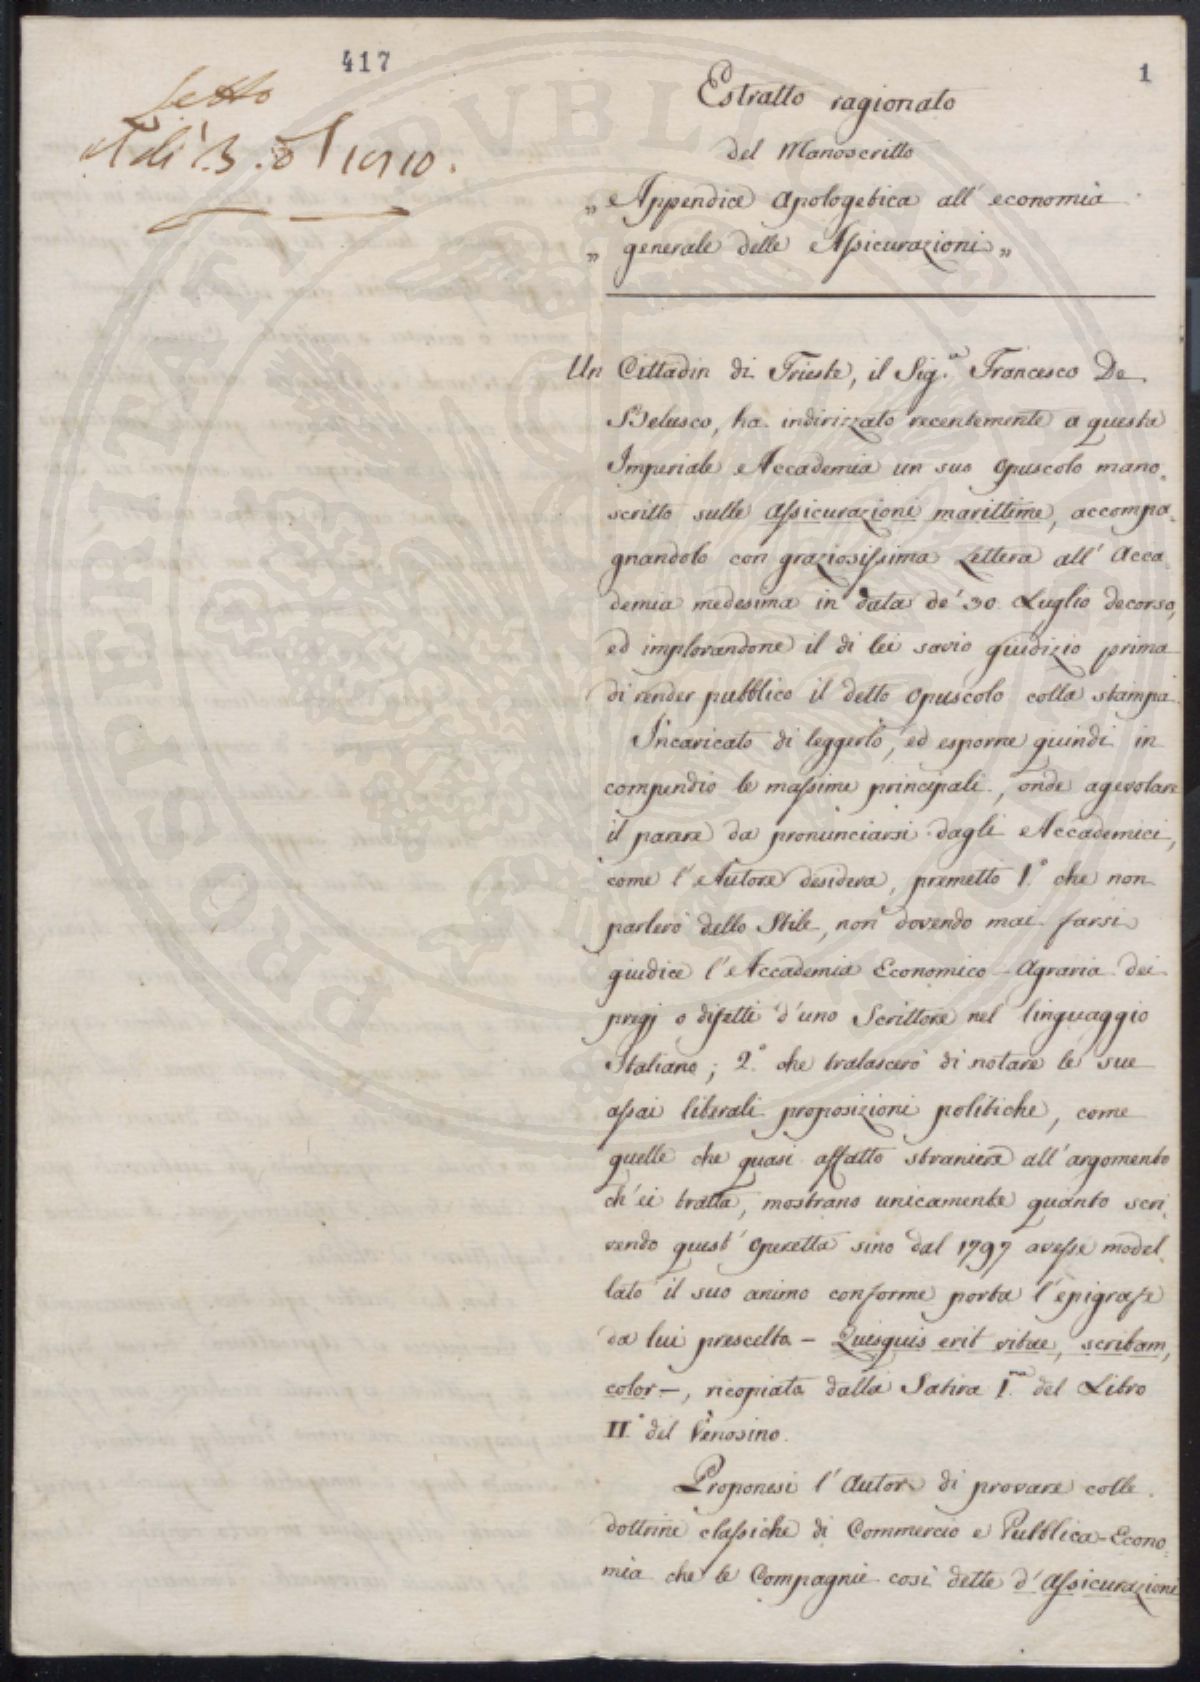 417
1
Letto
Estratto ragionato
del Manoscritto
„ Appendice Apologetica all' economia
„ generale delle Assicurazioni „
Un Cittadin di Trieste, il Sig.r Francesco De
Belusco, ha indirizzato recentemente a questa
Imperiale Accademia un suo Opuscolo mano-
scritto sulle Assicurazioni marittime, accompa-
gnandolo con graziosissima Lettera all' Acca-
demia medesima in data de' 30 Luglio decorso,
ed implorandone il di lei savio giudizio prima
di render pubblico il detto Opuscolo colla stampa.
Incaricato di leggerlo, ed esporne quindi in
compendio le massime principali, onde agevolare
il parere da pronunciarsi dagli Accademici,
come l' Autore desidera, premetto 1.° che non
parlerò dello Stile, non dovendo mai farsi
giudice l' Accademia Economico-Agraria dei
pregj o difetti d' uno Scrittore nel linguaggio
Italiano; 2.° che tralascerò di notare le sue
assai liberali proposizioni politiche, come
quelle che quasi affatto straniere all' argomento
ch' ei tratta, mostrano unicamente quanto scri-
vendo quest' Operetta sino dal 1797 avesse model-
lato il suo animo conforme porta l' epigrafe
da lui prescelta - Quisquis erit vitae, scribam,
color -, ricopiata dalla Satira I.ma del Libro
II° del Venosino.
Proponesi l' Autore di provare colle
dottrine classiche di Commercio e Pubblica-Econo-
mia che le Compagnie così dette d' Assicurazione
PROSPERITATI PUBLICAE